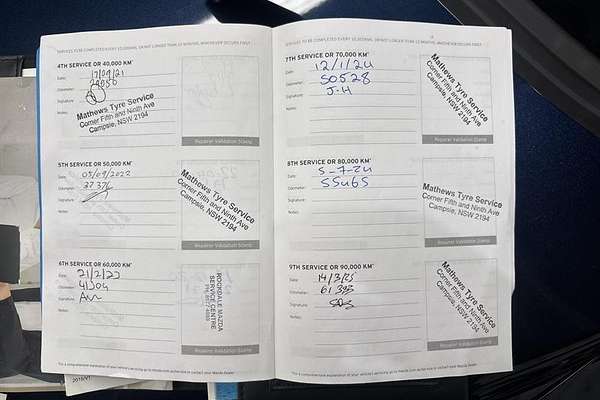 SERVICES TO BE COMPLETED EVERY 10,000KM, OR NOT LONGER THAN 12 MONTHS, WHICHEVER OCCURS FIRST
4TH SERVICE OR 40,000 KM*
Date: 17/09/21
Odometer:
Signature:
Notes:
Mathews Tyre Service
Corner Fifth and Ninth Ave
Campsie, NSW 2194
Repairer Validation Stamp
5TH SERVICE OR 50,000 KM*
Date: 05/09/2022
Odometer: 37376
Signature:
Notes:
Mathews Tyre Service
Corner Fifth and Ninth Ave
Campsie, NSW 2194
Repairer Validation Stamp
6TH SERVICE OR 60,000 KM*
Date: 21/2/23
Odometer:
Signature:
Notes:
ROCKDALE MAZDA
SERVICE CENTRE
Repairer Validation Stamp
7TH SERVICE OR 70,000 KM*
Date: 12/1/24
Odometer: 50528
Signature: J.H
Notes:
Mathews Tyre Service
Corner Fifth and Ninth Ave
Campsie, NSW 2194
Repairer Validation Stamp
8TH SERVICE OR 80,000 KM*
Date: 5-7-24
Odometer: 55465
Signature:
Notes:
Mathews Tyre Service
Corner Fifth and Ninth Ave
Campsie, NSW 2194
Repairer Validation Stamp
9TH SERVICE OR 90,000 KM*
Date: 14/3/25
Odometer: 61393
Signature:
Notes:
Mathews Tyre Service
Corner Fifth and Ninth Ave
Campsie, NSW 2194
Repairer Validation Stamp